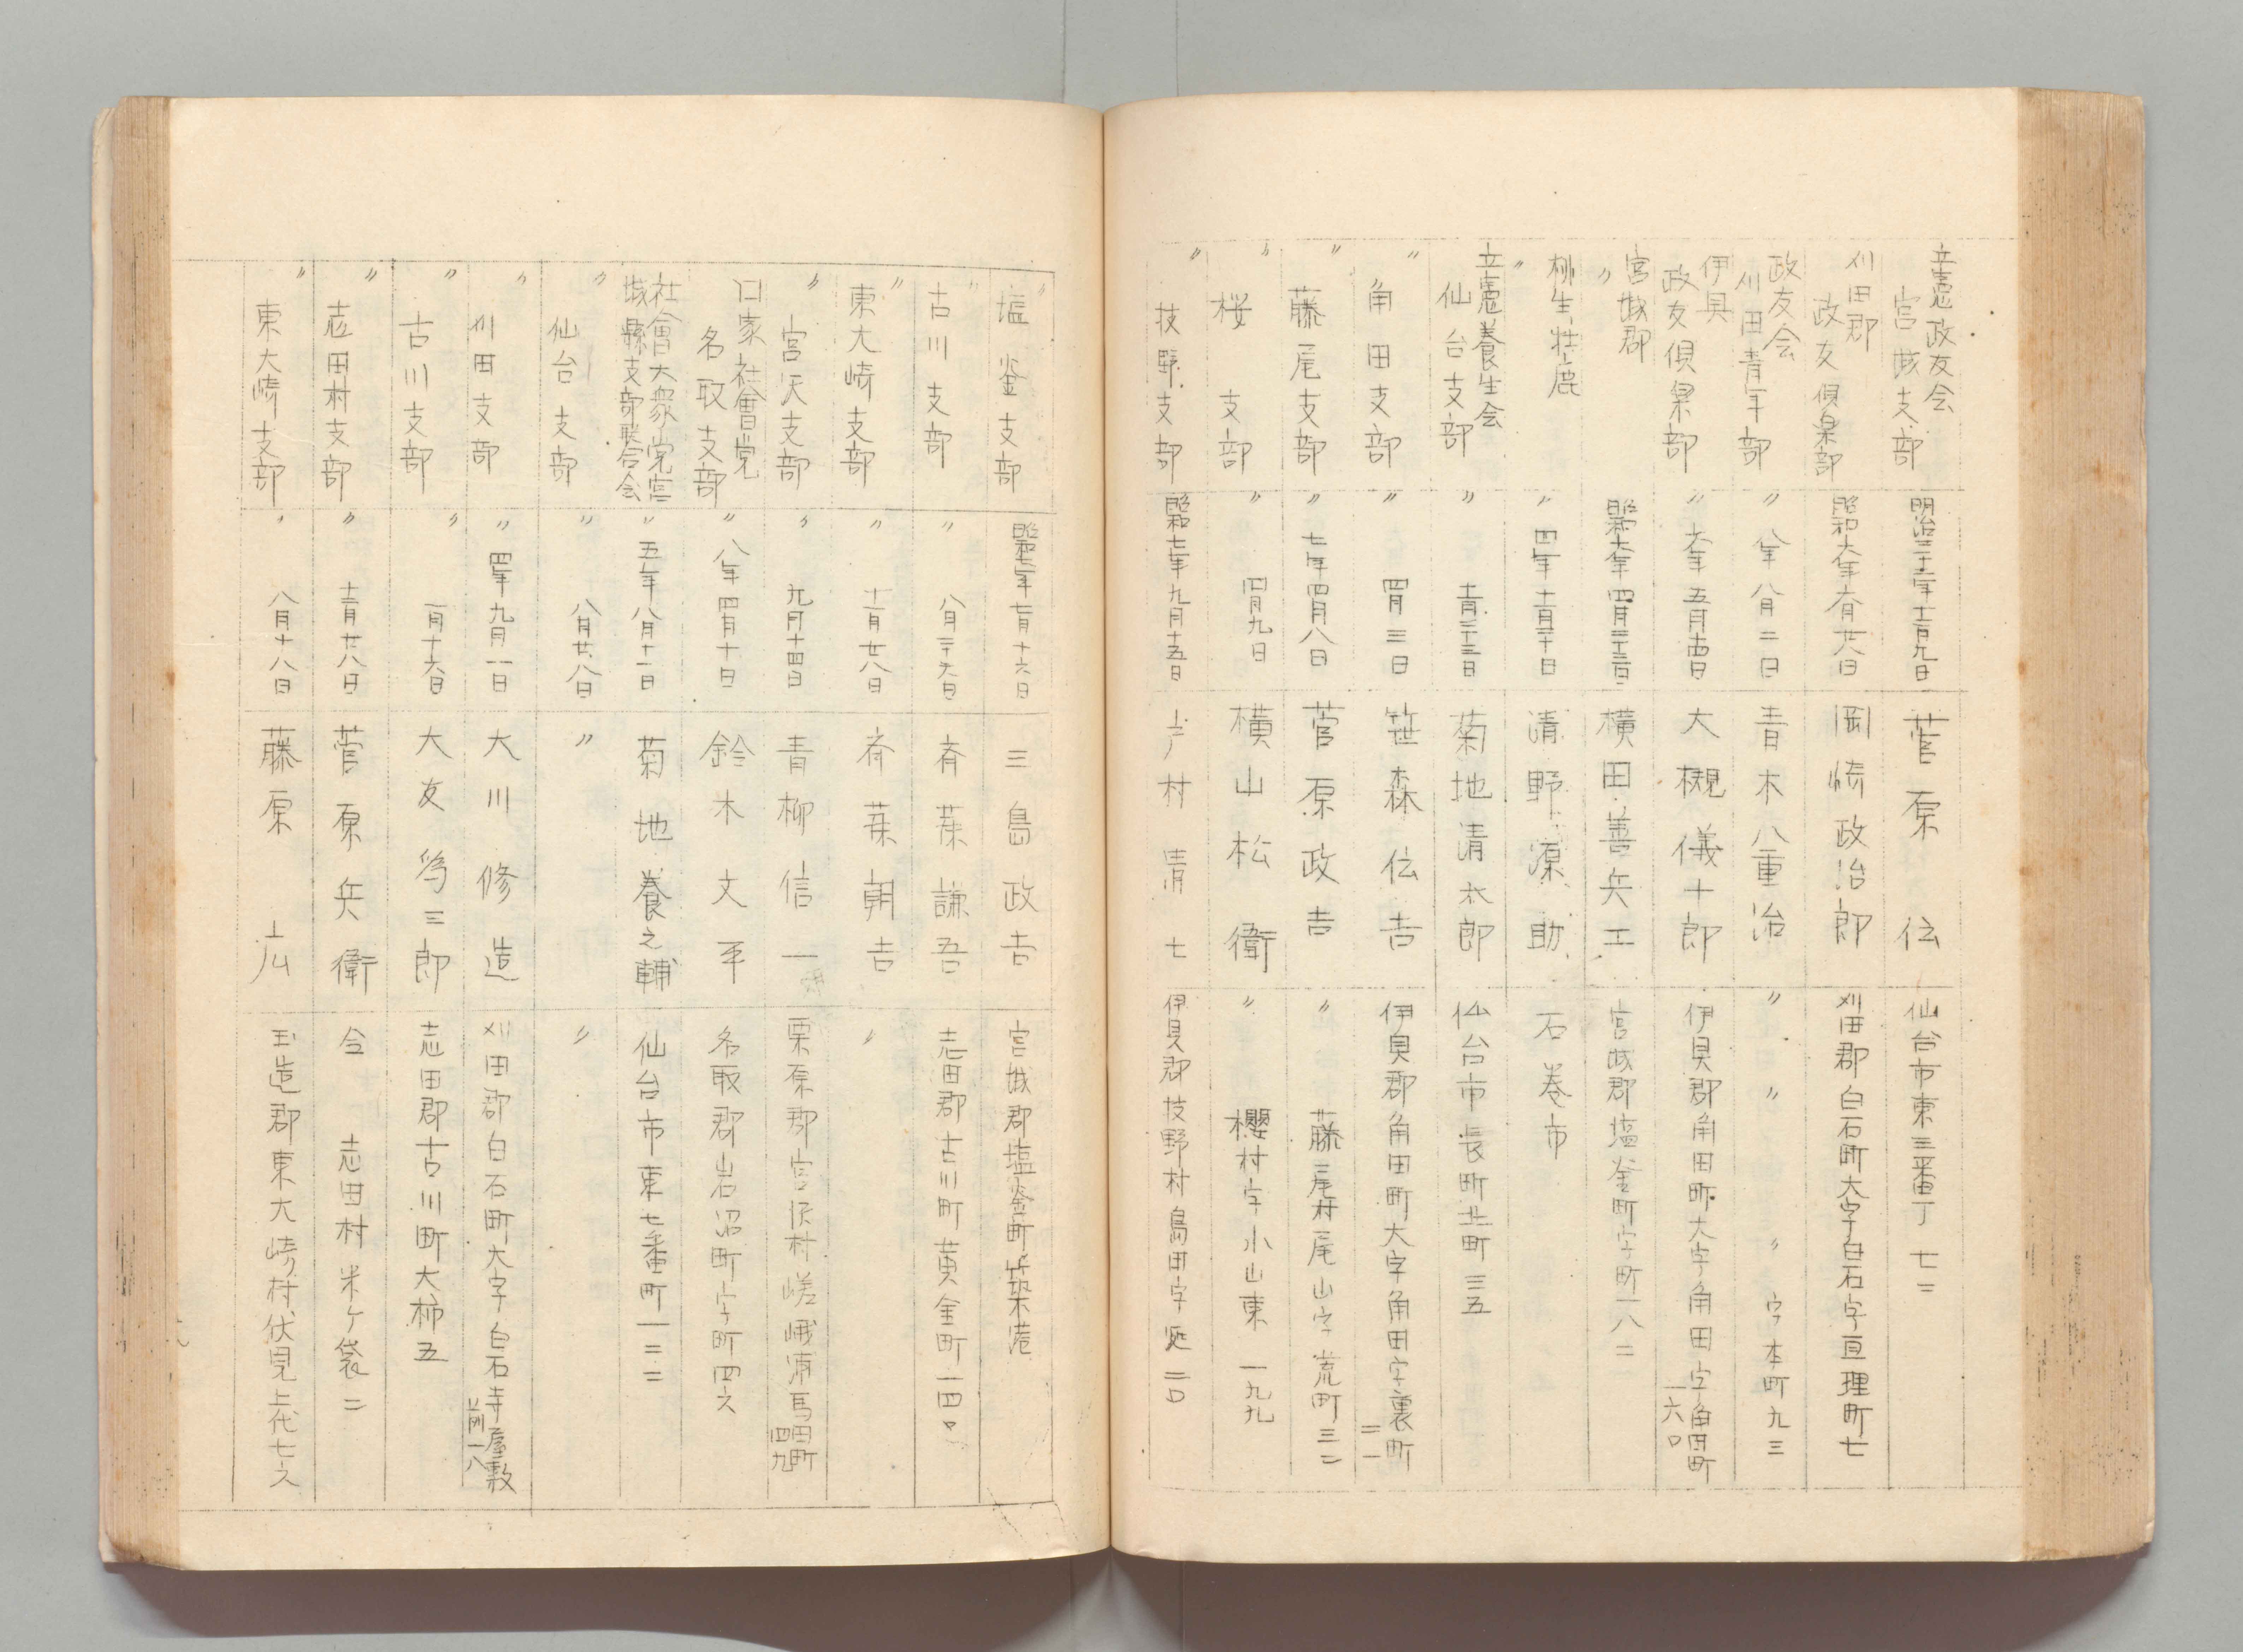 立憲政友会
宮城支部
明治三十三年十二月九日
菅原伝
仙台市東三番丁七二
刈田郡
政友倶楽部
昭和六年六月廿六日
岡崎政治郎
刈田郡白石町大字白石字亘理町七
政友会
刈田青年部
〃八年八月二日
青木八重治
〃〃〃字本町九三
伊具
政友倶楽部
〃六年五月十四日
大槻儀十郎
伊具郡角田町大字角田字角田町
一六〇
宮城郡〃
昭和六年四月二十三日
横田善兵エ
宮城郡塩釜町字町一八二
桃生、牡鹿〃
〃四年十二月二十日
清野源助
石巻市
立憲養生会
仙台支部
〃十二月二十三日
菊地清太郎
仙台市長町北町三五
〃角田支部
〃四月三日
笹森伝吉
伊具郡角田町大字角田字裏町
三一
〃藤尾支部
〃七年四月八日
菅原政吉
〃藤尾村尾山字荒町三二
〃桜支部
〃四月九日
横山松衛
〃櫻村字小山東一九九
〃枝野支部
昭和七年九月十五日
戸村清七
伊具郡枝野村島田字延二〇
〃塩釜支部
昭和七年七月十六日
三島政吉
宮城郡塩釜町築港
〃古川支部
〃八月二十六日
斉藤謙吾
志田郡古川町黄金町一四〇
〃東大崎支部
〃十一月廿八日
斉藤朝吉
〃
〃宮沢支部
〃九月十四日
青柳信一
栗原郡宮沢村嵯峨浦馬田町
四九
口家社會党
名取支部
〃八年四月十日
鈴木文平
名取郡岩沼町字町四六
社會大衆党宮
城縣支部聯合会
〃五年八月十一日
菊地養之輔
仙台市東七番町一三二
〃仙台支部
〃八月廿八日
〃
〃
〃刈田支部
〃四年九月一日
大川修造
刈田郡白石町大字白石寺屋敷
前一八
〃古川支部
〃一月十六日
大友為三郎
志田郡古川町大柿五
〃志田村支部
〃十一月廿八日
菅原兵衛
仝志田村米ケ袋二
〃東大崎支部
〃八月十八日
藤原広
玉造郡東大崎村伏見上代七六